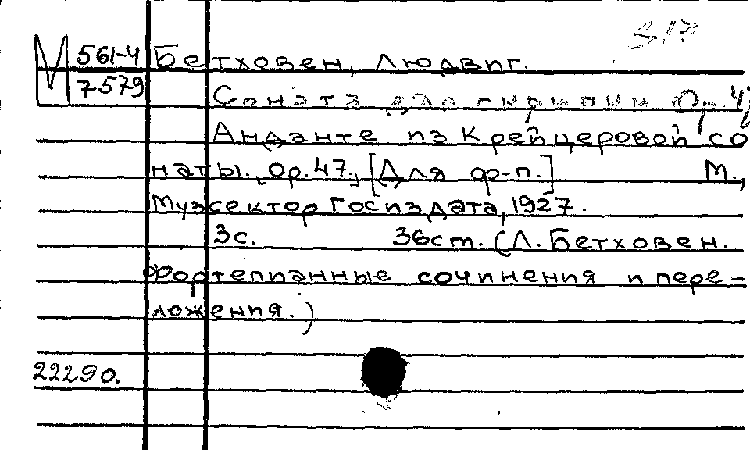 М 561-4 Бетховен, Людвиг.
7579
Соната для скрипки Ор. 47
Анданте из Крейцеровой со
наты., Ор. 47., [Для ф-п.] М.,
Музсектор Госиздата, 1927.
3с. 36cm. (Л. Бетховен.
Фортепианные сочинения и пере-
ложения.)
22290.